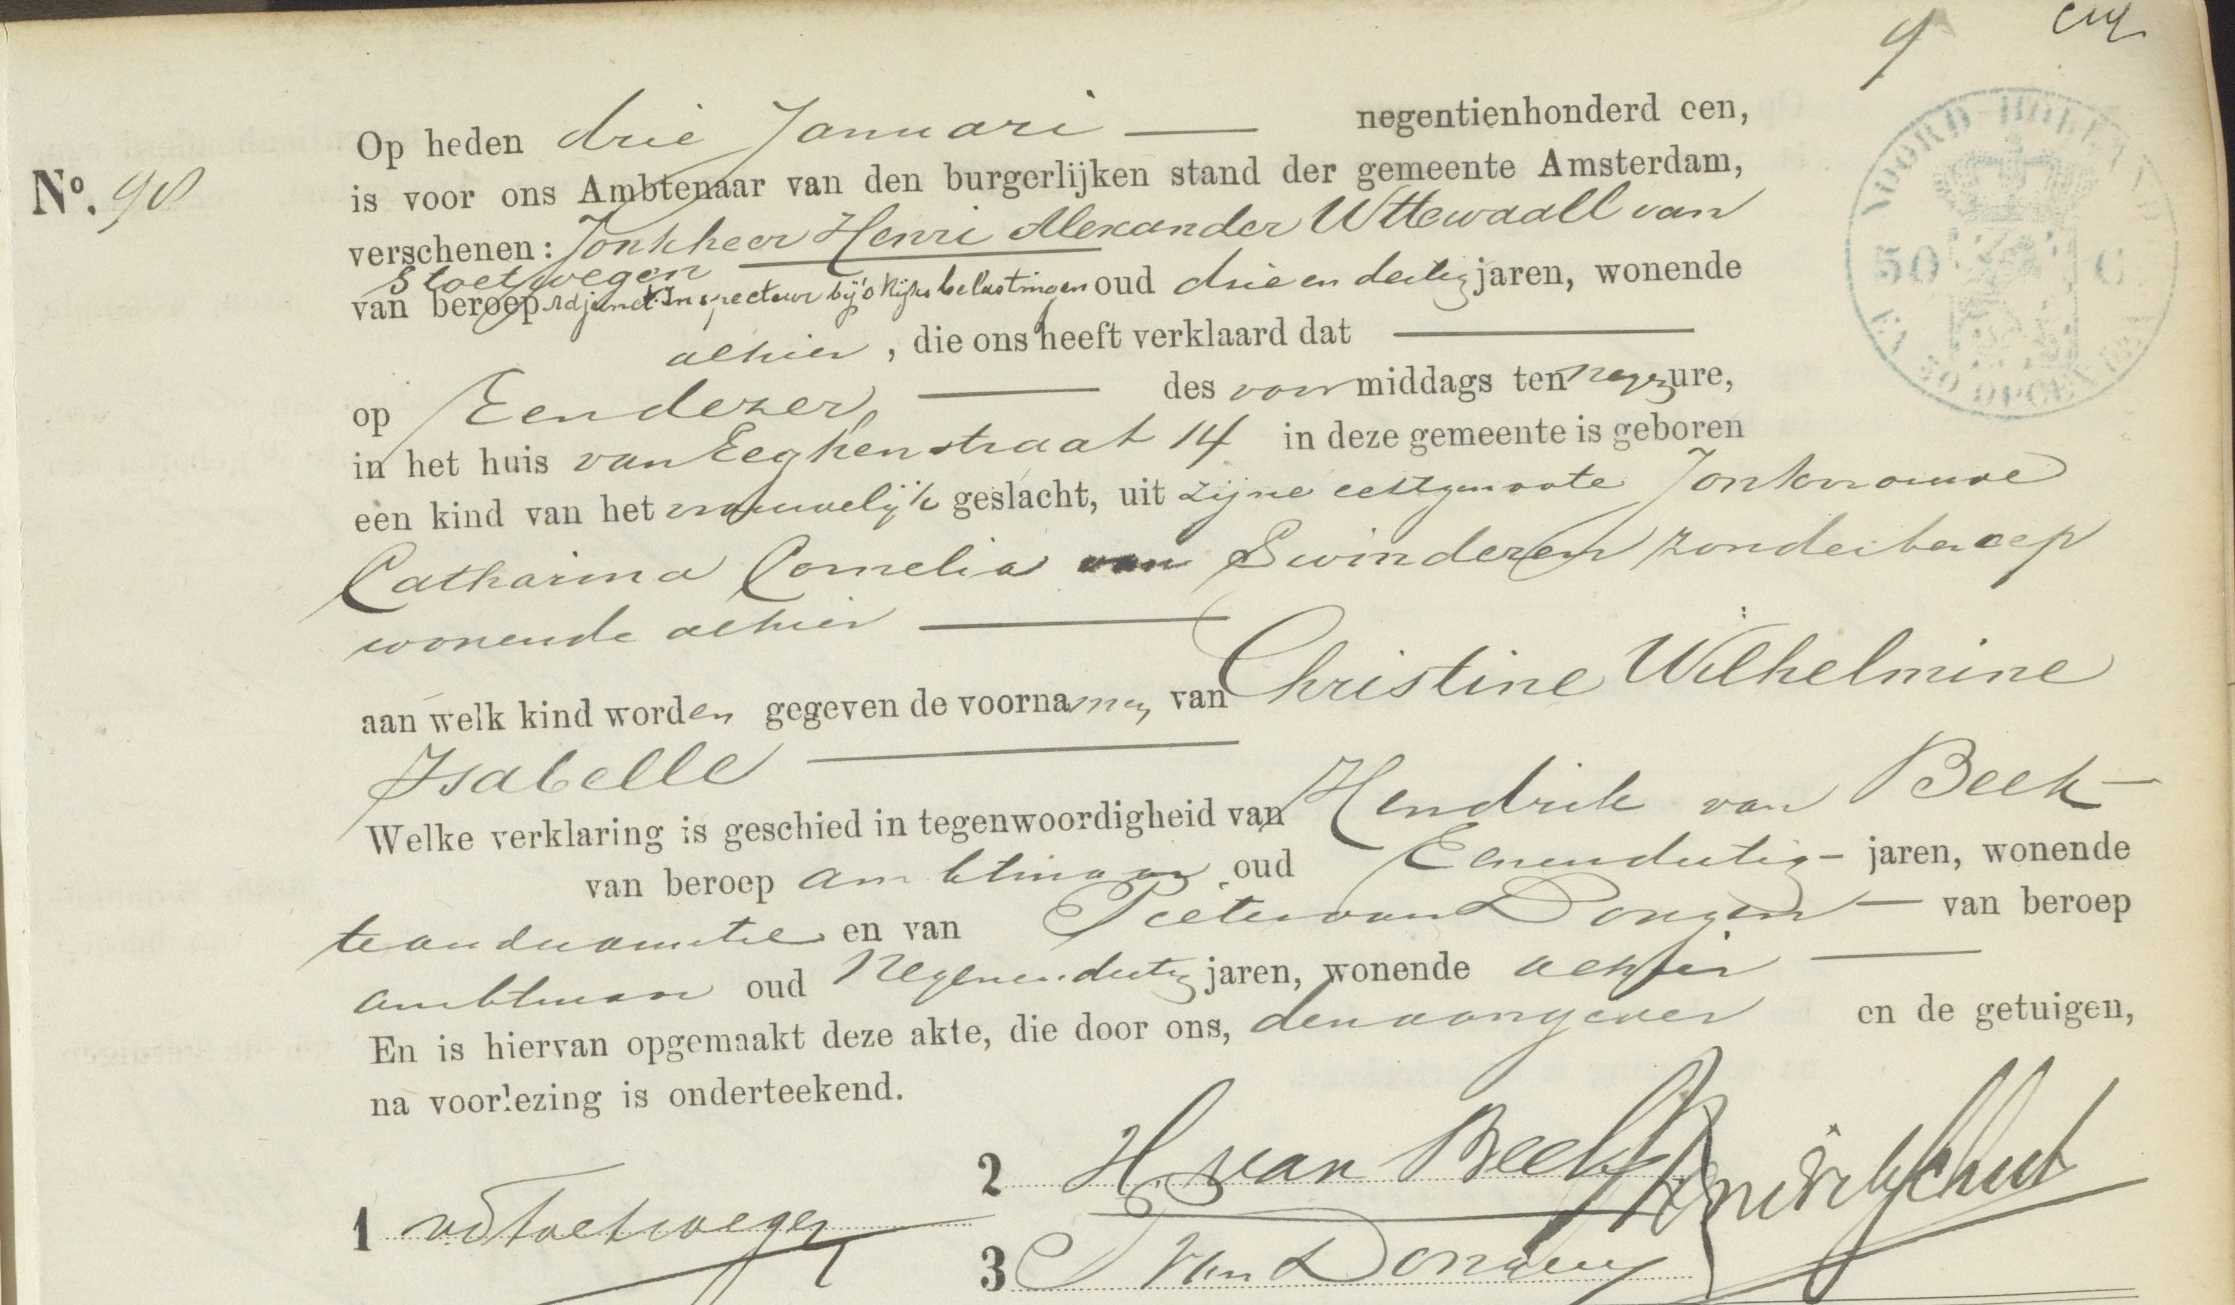 9
Op heden drie Januari — negentienhonderd een,
No. 98
is voor ons Ambtenaar van den burgerlijken stand der gemeente Amsterdam,
verschenen: Jonkheer Henri Alexander Wttewaall van
Stoetwegen
van beroep Adjunct Inspecteur bij 's Rijks belastingen oud drie en dertig jaren, wonende
alhier, die ons heeft verklaard dat —
op Een dezer, — des voor middags ten negen ure,
in het huis van Eeghenstraat 14 in deze gemeente is geboren
een kind van het vrouwelijk geslacht, uit zijne echtgenoote Jonkvrouwe
Catharina Cornelia van Swinderen zonder beroep
wonende alhier —
aan welk kind worden gegeven de voornamen van Christine Wilhelmine
Isabelle —
Welke verklaring is geschied in tegenwoordigheid van Hendrik van Beek —
van beroep ambtenaar oud Eenendertig — jaren, wonende
en van Pieter van Dongen — van beroep
ambtenaar oud Negenendertig jaren, wonende alhier —
En is hiervan opgemaakt deze akte, die door ons, den aangever en de getuigen,
na voorlezing is onderteekend.
2 H. van Beek
1 vStoetwegen
3 P van Dongen
NOORD-HOLLAND
50 C
EN 50 OPCENTEN